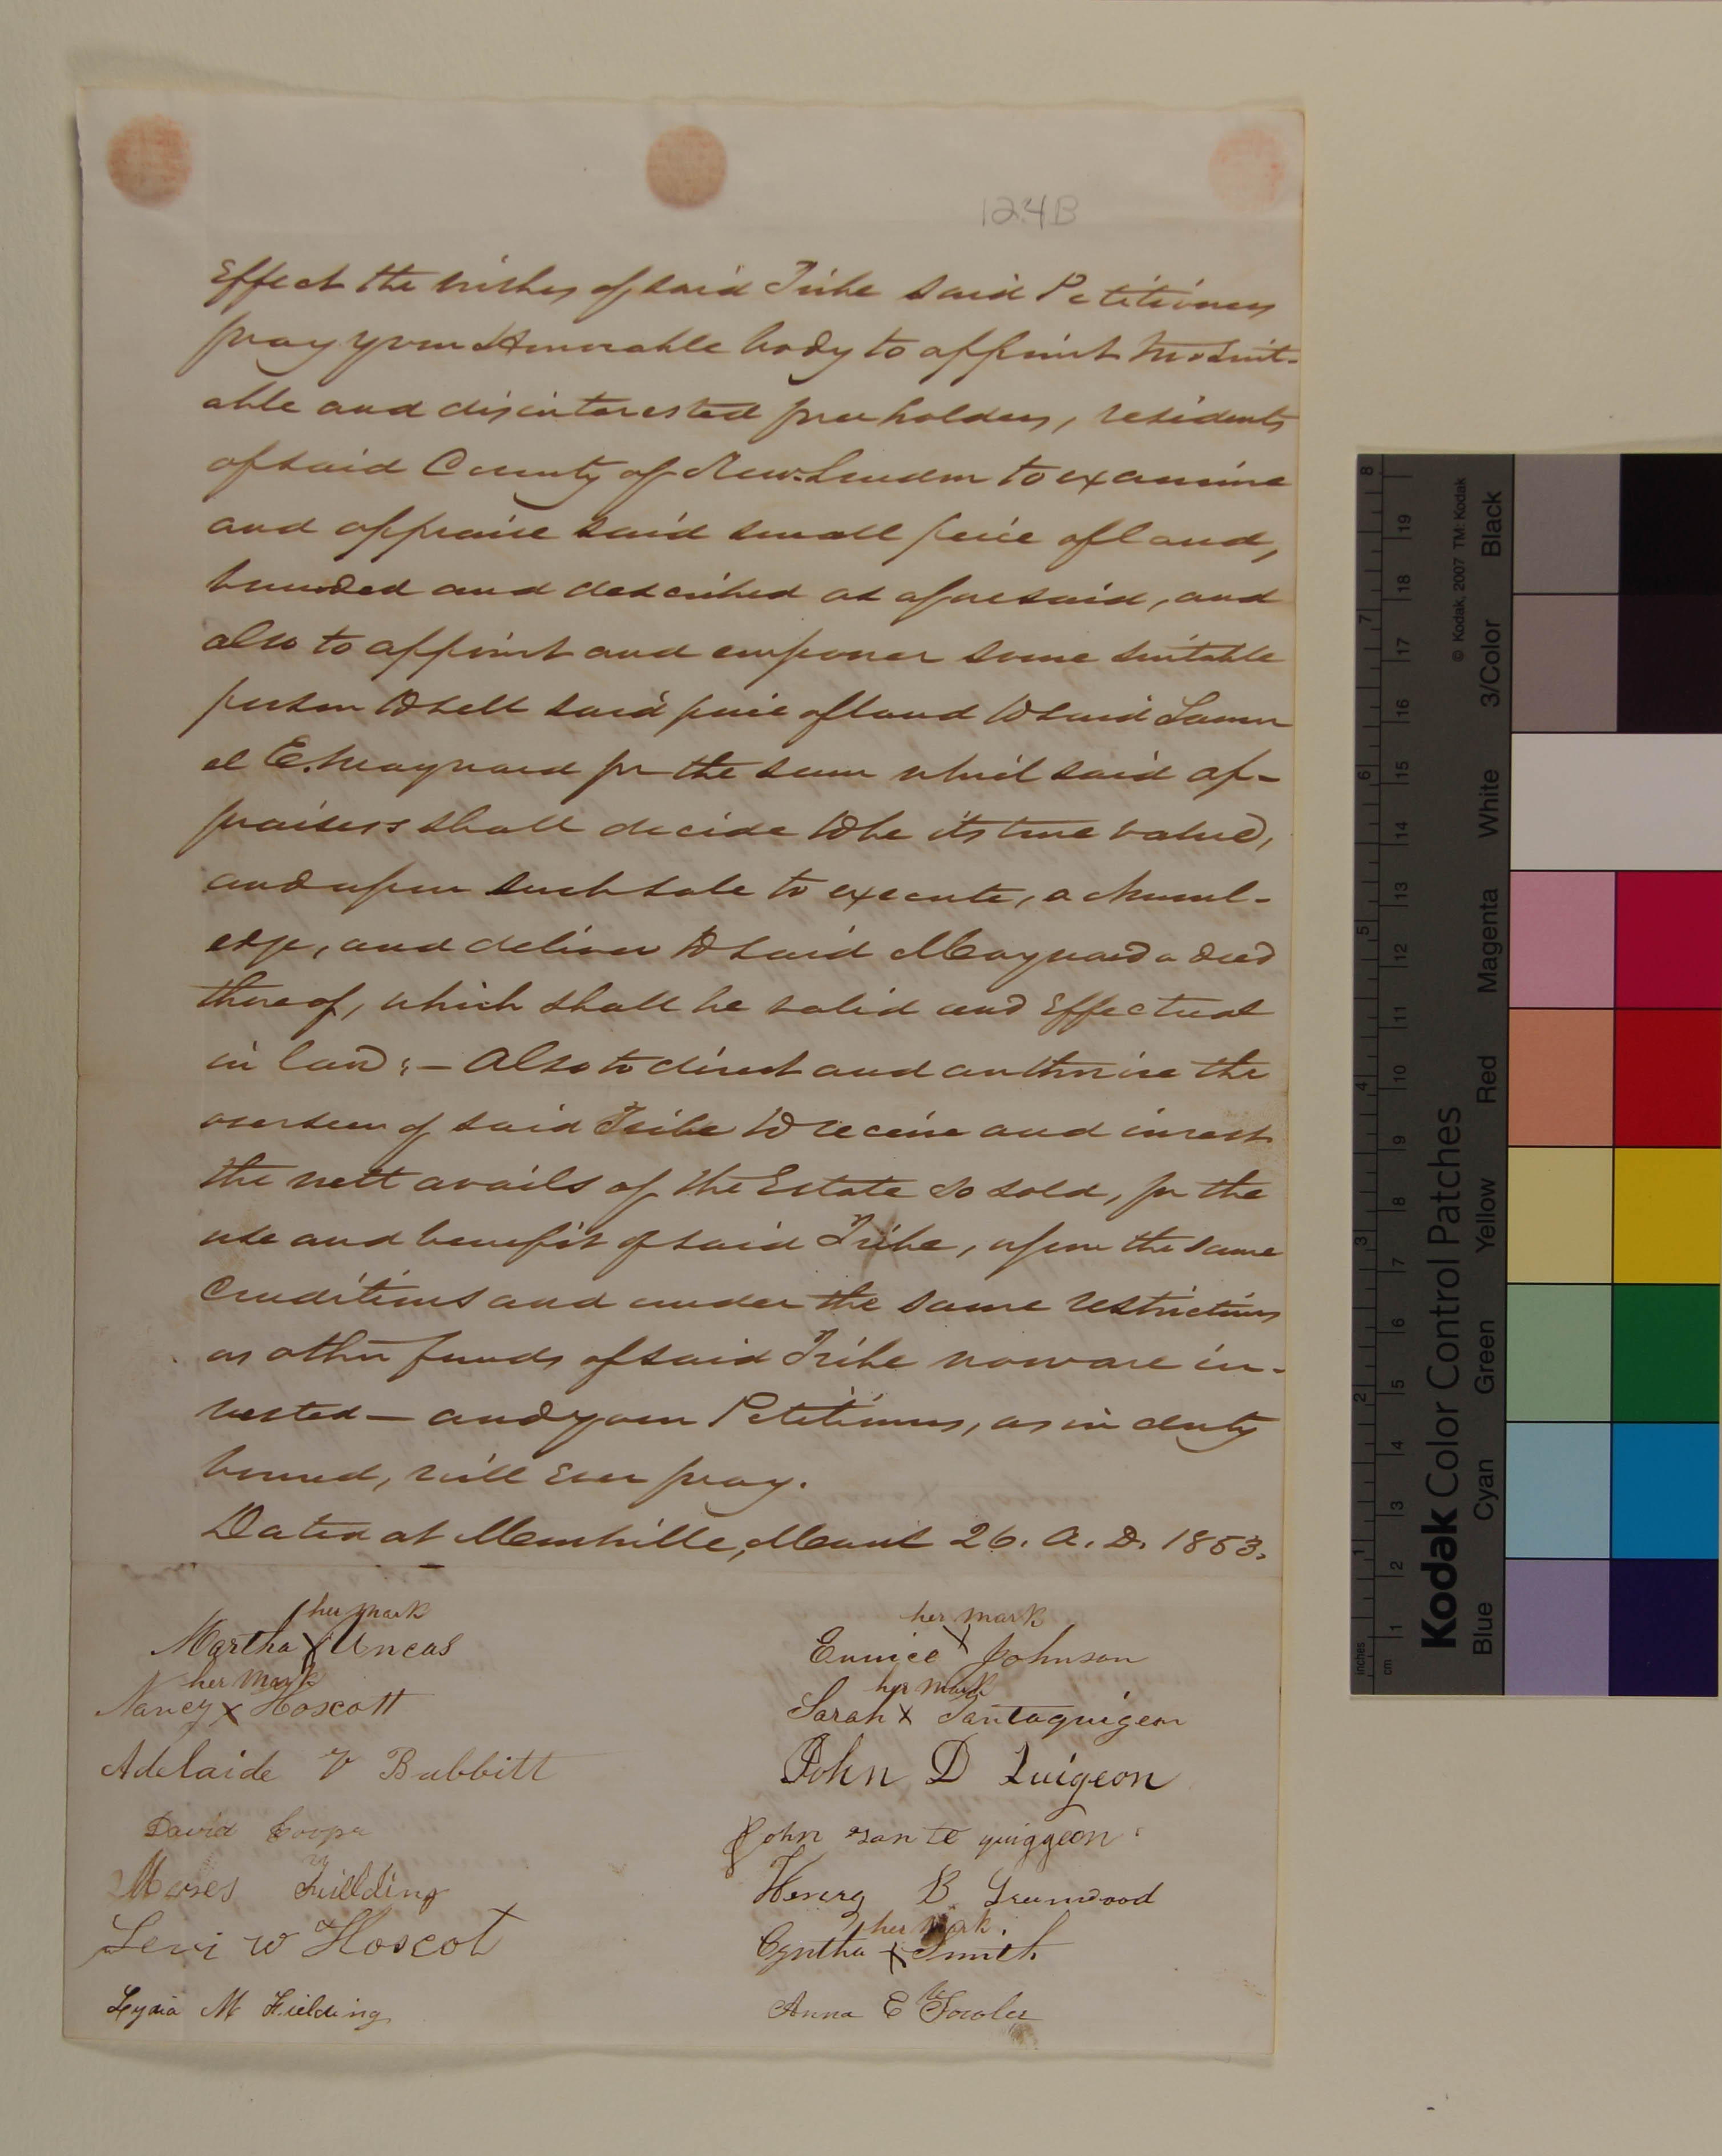 124B
Effect the wishes of said Tribe said Petitioners
pray your Honorable body to appoint two suit-
able and disinterested freeholders, residents
of said County of New-London to examine
and appraise said small peice of land,
bounded and described as aforesaid, and
also to appoint and empower some suitable
person to sell said peice of land to said Samu
el E. Maynard for the sum which said ap-
praisers shall decide to be its true value,
and upon such sale to execute, acknowl-
edge, and deliver to said Maynard a deed
thereof, which shall be valid and Effectual
in law; - Also to direct and authorise the
overseer of said Tribe to receive and invest
the nett avails of the Estate so sold, for the
use and benefit of said Tribe, upon the same
Conditions and under the same restrictions
as other funds of said Tribe now are in-
vested - and your Petitioners, as in duty
bound, will Ever pray.
Dated at Montville, March 26. A. D. 1853.
her mark
Martha X Uncas
her mark
Nancy X Hoscott
Adelaide V Babbitt
David Cooper
Moses Fieilding
Levi W Hoscot
Lydia M Fielding
her mark
Eunice X Johnson
her mark
Sarah X Tantaquigeon
John D Quigeon
John tan te quiggeon
Henery B Greenwood
her mark.
Cyntha X Smith
Anna E Fowler
Kodak Color Control Patches
© Kodak, 2007 TM: Kodak
Blue Cyan Green Yellow Red Magenta White 3/Color Black
inches 1 2 3 4 5 6 7 8
cm 1 2 3 4 5 6 7 8 9 10 11 12 13 14 15 16 17 18 19